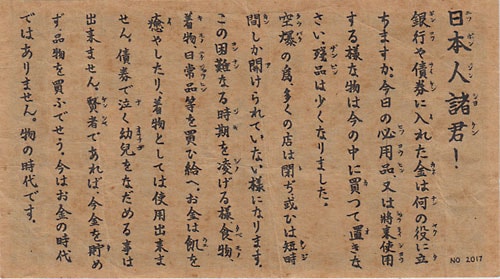 日本人諸君！
銀行や債券に入れた金は何の役に立
ちますか。今日の必用品又は將来使用
する様な物は今の中に買つて置きな
さい。残品は少くなりました。
空爆の為多くの店は閉ぢ或ひは短時
間しか開けられていない様になります。
この困難なる時期を凌げる様、食物、
着物、日常品等を買ひ給へ。お金は飢を
癒やしたり、着物としては使用出来ま
せん。債券で泣く幼児をなだめる事は
出来ません。賢者であれば今金を貯め
ず品物を買ふでせう。今はお金の時代
ではありません。物の時代です。
NO 2017